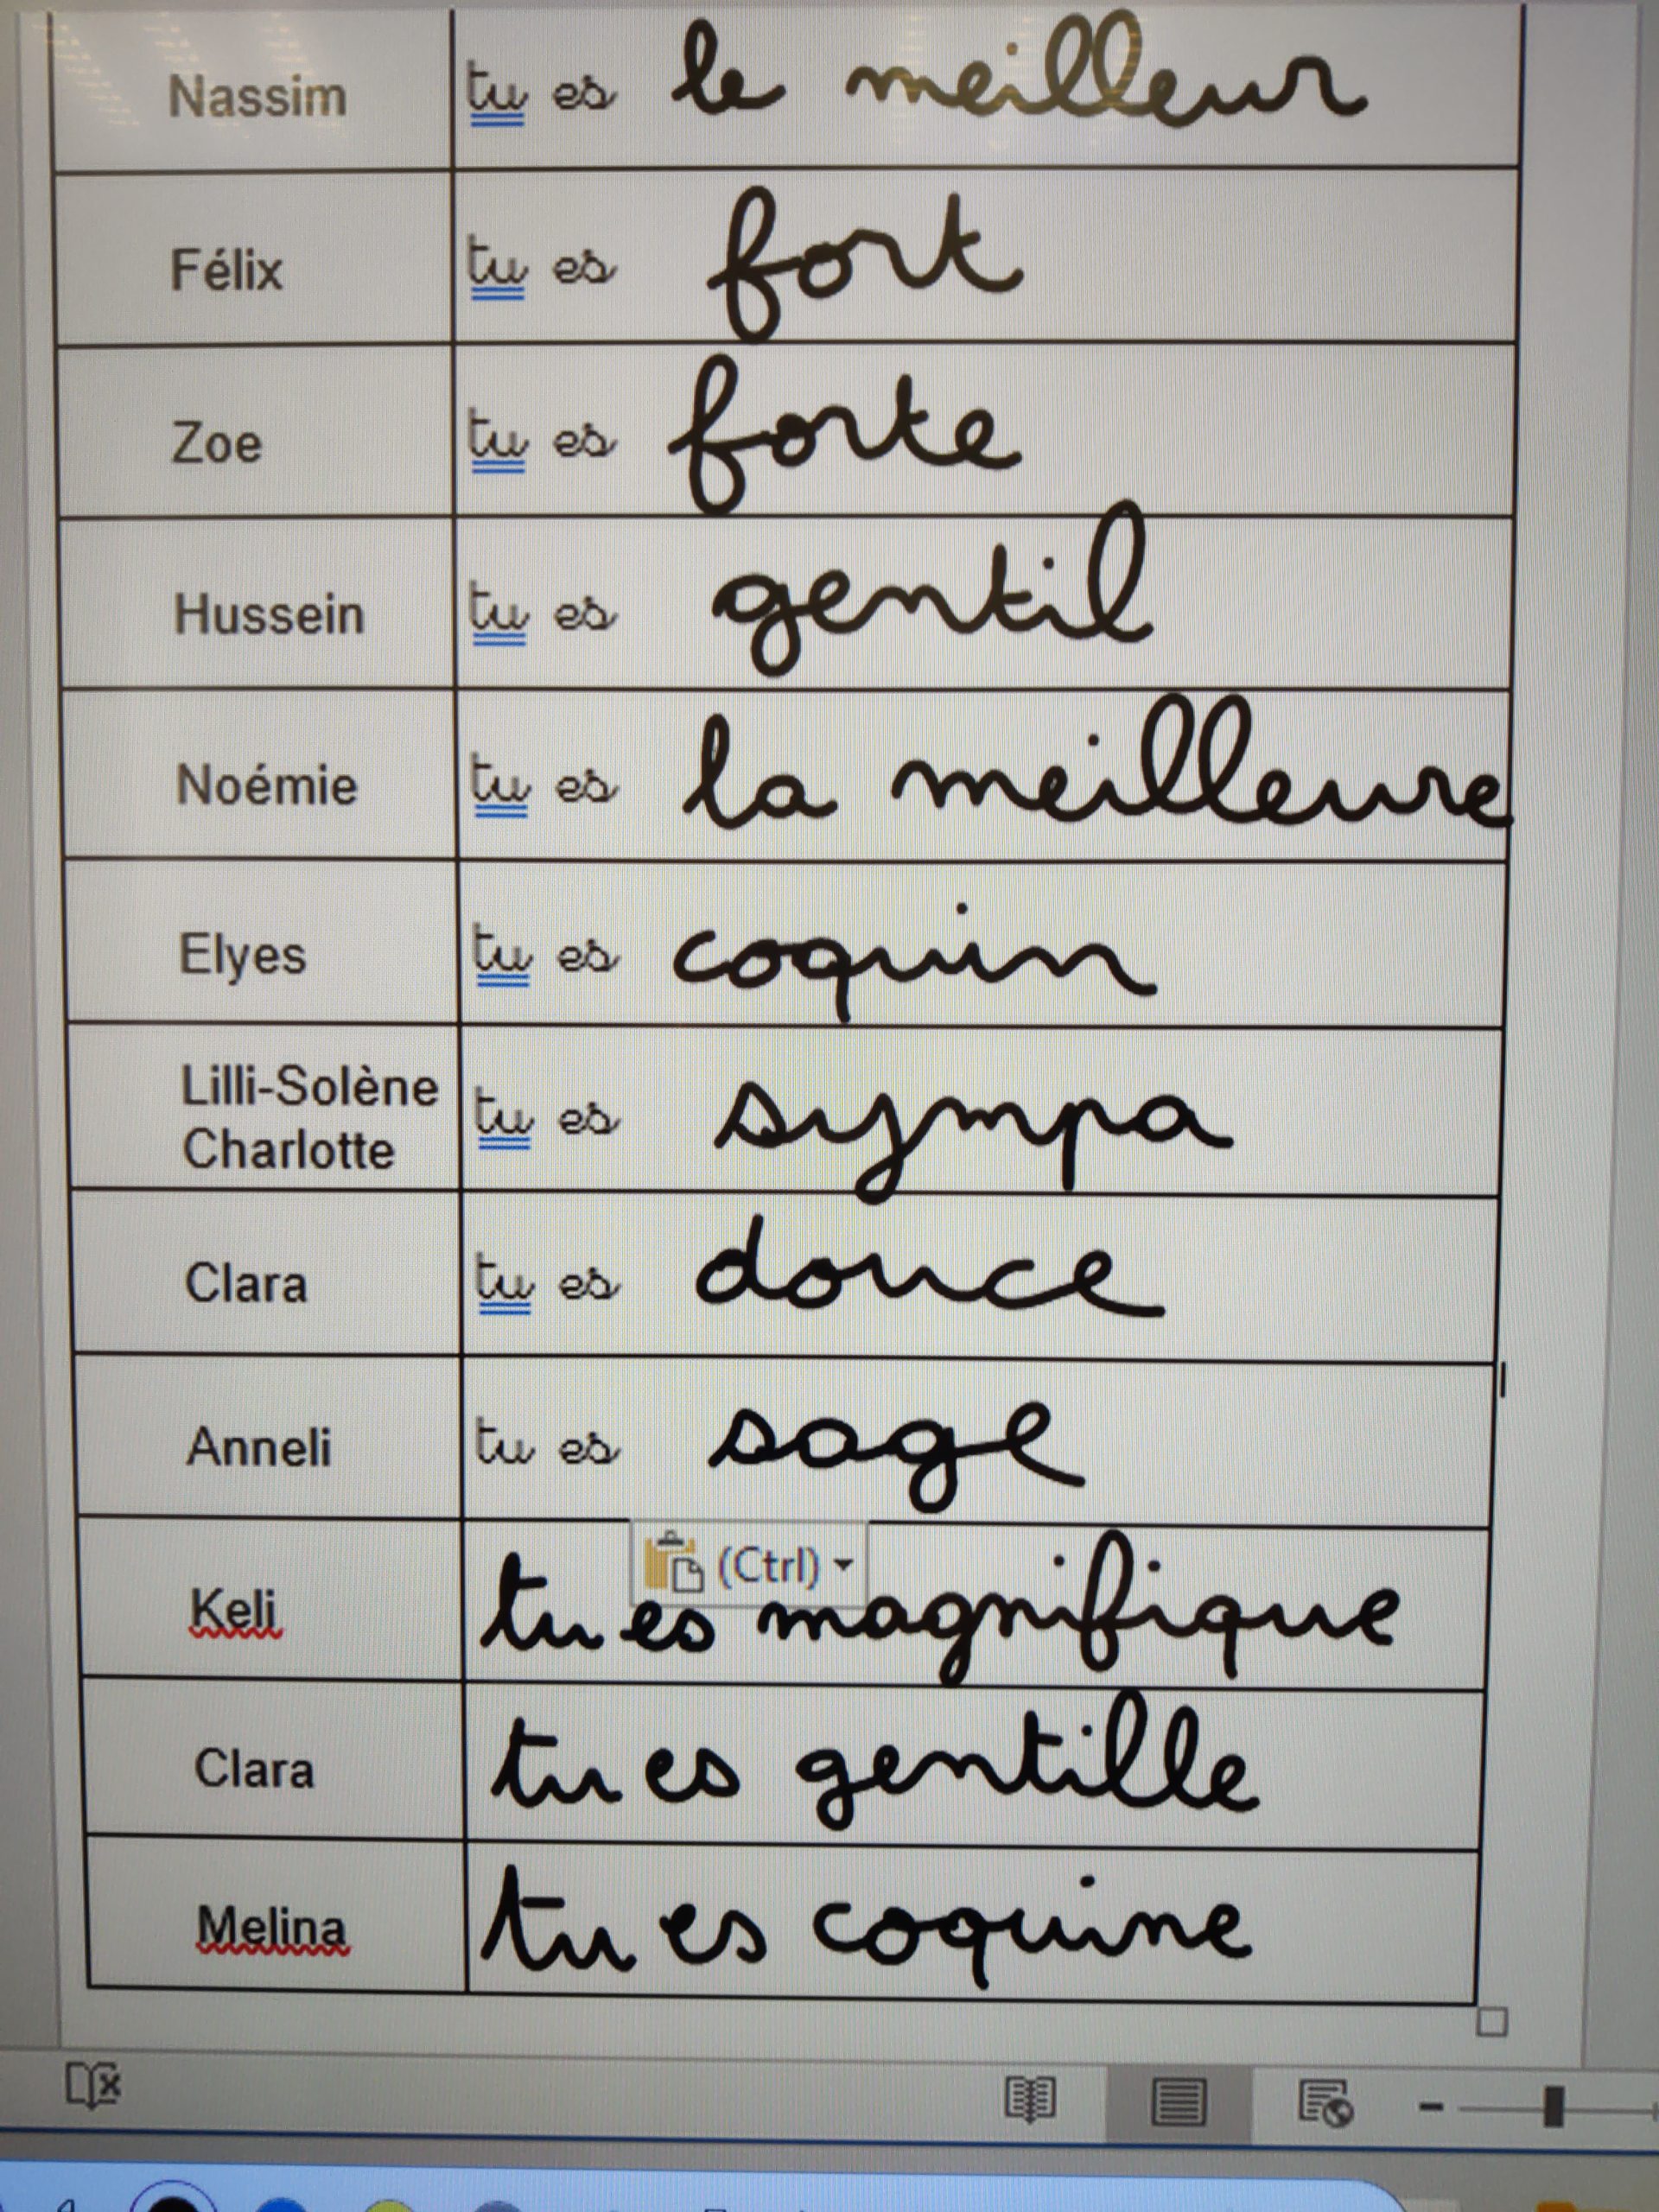 Nassim tu es le meilleur
Félix tu es fort
Zoe tu es forte
Hussein tu es gentil
Noémie tu es la meilleure
Elyes tu es coquin
Lilli-Solène
Charlotte tu es sympa
Clara tu es douce
Anneli tu es sage
(Ctrl)
Keli tu es magnifique
Clara tu es gentille
Melina tu es coquine